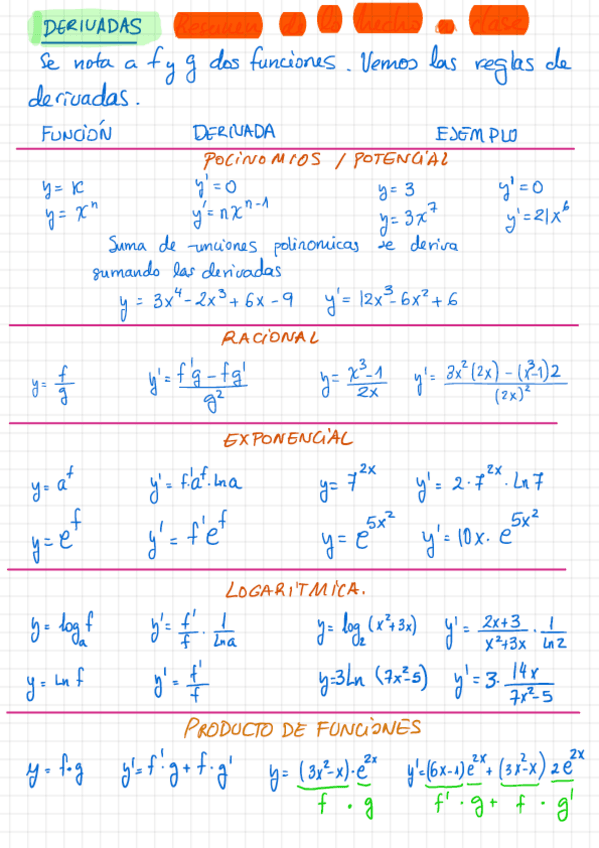 DERIVADAS Resumen de lo hecho en clase
Se nota a f y g dos funciones. Vemos las reglas de
derivadas.
FUNCIÓN DERIVADA EJEMPLO
POLINOMIOS / POTENCIAL
y = K y' = 0 y = 3 y' = 0
y = xⁿ y' = nxⁿ⁻¹ y = 3x⁷ y' = 21x⁶
Suma de unciones polinomicas se deriva
sumando las derivadas
y = 3x⁴ - 2x³ + 6x - 9 y' = 12x³ - 6x² + 6
RACIONAL
y = f/g y' = (f'g - fg')/g² y = (x³-1)/2x y' = (3x²(2x) - (x³-1)2)/(2x)²
EXPONENCIAL
y = a^f y' = f'·a^f·Ln a y = 7^(2x) y' = 2·7^(2x)·Ln 7
y = e^f y' = f'e^f y = e^(5x²) y' = 10x·e^(5x²)
LOGARITMICA.
y = log_a f y' = f'/f · 1/Ln a y = log₂(x²+3x) y' = (2x+3)/(x²+3x) · 1/Ln 2
y = Ln f y' = f'/f y = 3Ln (7x²-5) y' = 3· 14x/(7x²-5)
PRODUCTO DE FUNCIONES
y = f·g y' = f'·g + f·g' y = (3x²-x)·e^(2x) y' = (6x-1)e^(2x) + (3x²-x) 2e^(2x)
f · g f' · g + f · g'